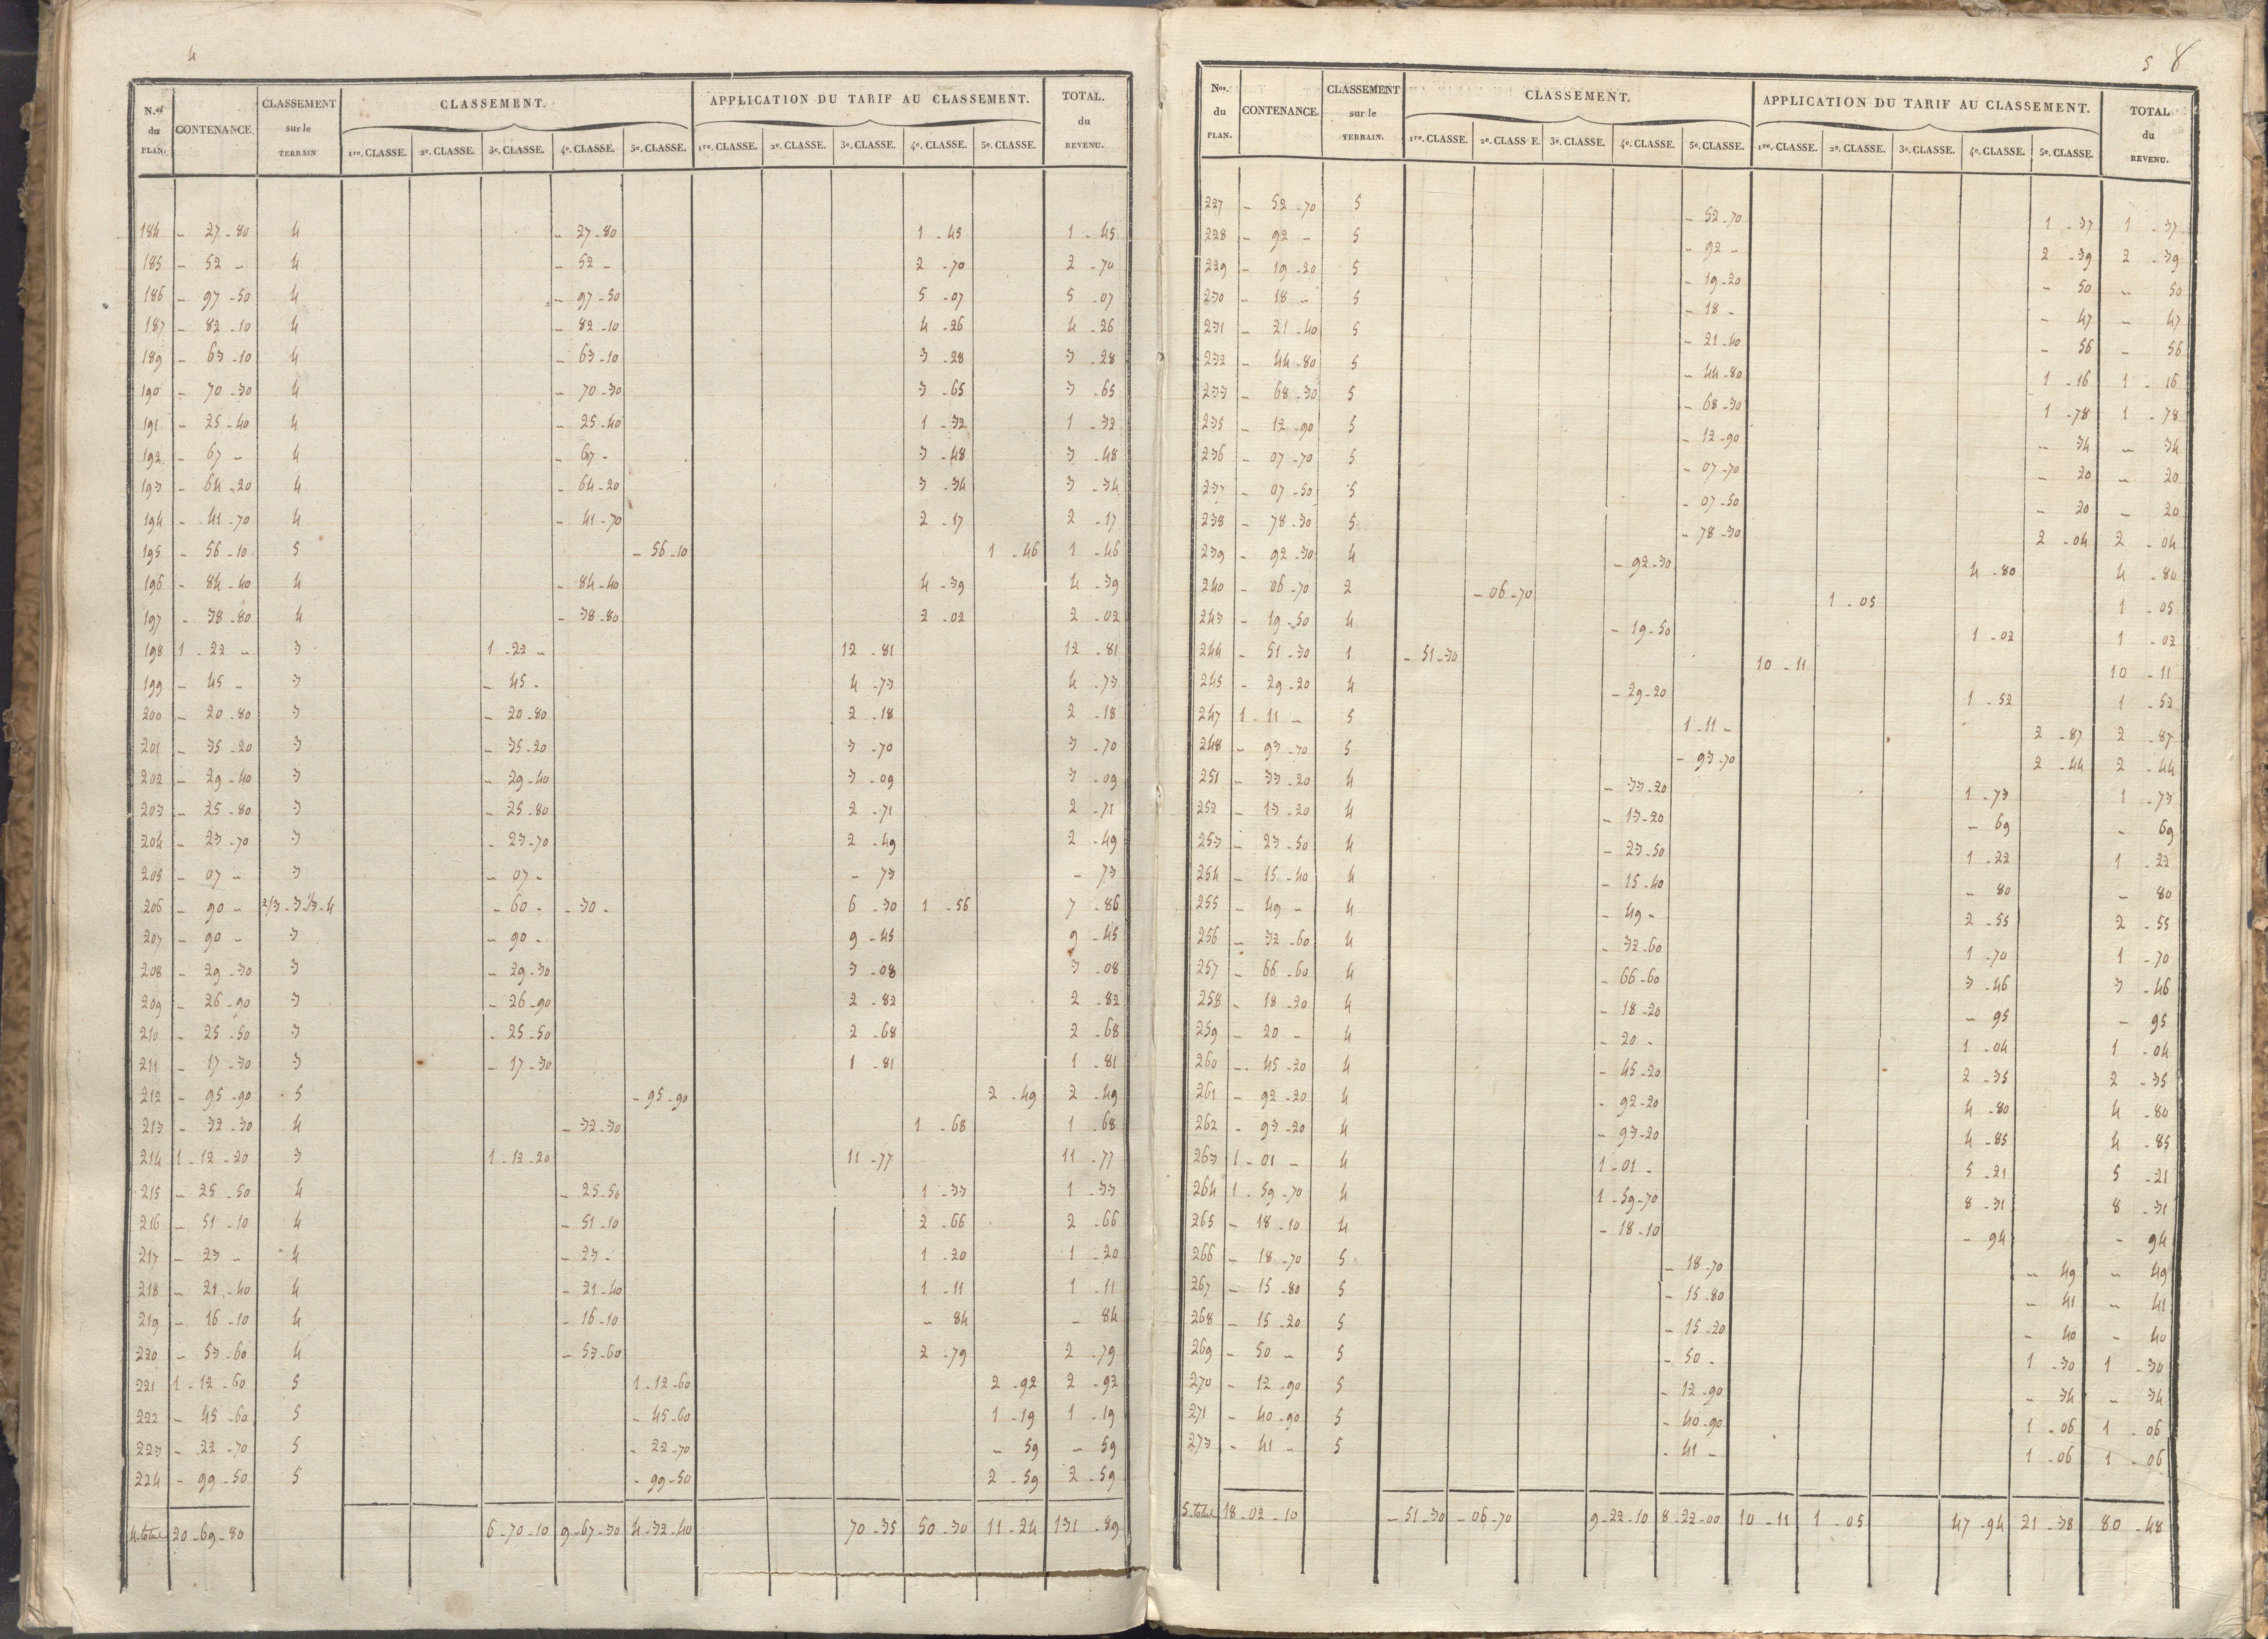 4
N.os du PLAN. CONTENANCE. CLASSEMENT sur le TERRAIN CLASSEMENT. APPLICATION DU TARIF AU CLASSEMENT. TOTAL. du REVENU.
1re. CLASSE. 2e. CLASSE. 3e. CLASSE. 4e. CLASSE. 5e. CLASSE. 1re. CLASSE. 2e. CLASSE. 3e. CLASSE. 4e. CLASSE. 5e. CLASSE.
184 - 27 - 80 4 - 27 - 80 1 - 45 1 - 45
185 - 52 - 4 - 52 - 2 - 70 2 - 70
186 - 97 - 50 4 - 97 - 50 5 - 07 5 - 07
187 - 82 - 10 4 - 82 - 10 4 - 26 4 - 26
189 - 63 - 10 4 - 63 - 10 3 - 28 3 - 28
190 - 70 - 30 4 - 70 - 30 3 - 65 3 - 65
191 - 25 - 40 4 - 25 - 40 1 - 32 1 - 32
192 - 67 - 4 - 67 - 3 - 48 3 - 48
193 - 64 - 20 4 - 64 - 20 3 - 34 3 - 34
194 - 41 - 70 4 - 41 - 70 2 - 17 2 - 17
195 - 56 - 10 5 - 56 - 10 1 - 46 1 - 46
196 - 84 - 40 4 - 84 - 40 4 - 39 4 - 39
197 - 38 - 80 4 - 38 - 80 2 - 02 2 - 02
198 1 - 22 - 3 1 - 22 - 12 - 81 12 - 81
199 - 45 - 3 - 45 - 4 - 73 4 - 73
200 - 20 - 80 3 - 20 - 80 2 - 18 2 - 18
201 - 35 - 20 3 - 35 - 20 3 - 70 3 - 70
202 - 29 - 40 3 - 29 - 40 3 - 09 3 - 09
203 - 25 - 80 3 - 25 - 80 2 - 71 2 - 71
204 - 23 - 70 3 - 23 - 70 2 - 49 2 - 49
205 - 07 - 3 - 07 - - 73 - 73
206 - 90 - 2/3 - 3 1/3 - 4 - 60 - - 30 - 6 - 30 1 - 56 7 - 86
207 - 90 - 3 - 90 - 9 - 45 9 - 45
208 - 29 - 30 3 - 29 - 30 3 - 08 3 - 08
209 - 26 - 90 3 - 26 - 90 2 - 82 2 - 82
210 - 25 - 50 3 - 25 - 50 2 - 68 2 - 68
211 - 17 - 30 3 - 17 - 30 1 - 81 1 - 81
212 - 95 - 90 5 - 95 - 90 2 - 49 2 - 49
213 - 32 - 30 4 - 32 - 30 1 - 68 1 - 68
214 1 - 12 - 20 3 1 - 12 - 20 11 - 77 11 - 77
215 - 25 - 50 4 - 25 - 50 1 - 33 1 - 33
216 - 51 - 10 4 - 51 - 10 2 - 66 2 - 66
217 - 23 - 4 - 23 - 1 - 20 1 - 20
218 - 21 - 40 4 - 21 - 40 1 - 11 1 - 11
219 - 16 - 10 4 - 16 - 10 - 84 - 84
220 - 53 - 60 4 - 53 - 60 2 - 79 2 - 79
221 1 - 12 - 60 5 1 - 12 - 60 2 - 92 2 - 92
222 - 45 - 60 5 - 45 - 60 1 - 19 1 - 19
223 - 22 - 70 5 - 22 - 70 - 59 - 59
224 - 99 - 50 5 - 99 - 50 2 - 59 2 - 59
4. total 20 - 69 - 80 6 - 70 - 10 9 - 67 - 30 4 - 32 - 40 70 - 35 50 - 30 11 - 24 131 - 89
5 8
Nos. du PLAN. CONTENANCE. CLASSEMENT sur le TERRAIN. CLASSEMENT. APPLICATION DU TARIF AU CLASSEMENT. TOTAL du REVENU.
1re. CLASSE. 2e. CLASSE. 3e. CLASSE. 4e. CLASSE. 5e. CLASSE. 1re. CLASSE. 2e. CLASSE. 3e. CLASSE. 4e. CLASSE. 5e. CLASSE.
227 - 52 - 70 5 - 52 - 70 1 - 37 1 - 37
228 - 92 - 5 - 92 - 2 - 39 2 - 39
229 - 19 - 20 5 - 19 - 20 - 50 - 50
230 - 18 - 5 - 18 - - 47 - 47
231 - 21 - 40 5 - 21 - 40 - 56 - 56
232 - 44 - 80 5 - 44 - 80 1 - 16 1 - 16
233 - 68 - 30 5 - 68 - 30 1 - 78 1 - 78
235 - 12 - 90 5 - 12 - 90 - 34 - 34
236 - 07 - 70 5 - 07 - 70 - 20 - 20
237 - 07 - 50 5 - 07 - 50 - 20 - 20
238 - 78 - 30 5 - 78 - 30 2 - 04 2 - 04
239 - 92 - 30 4 - 92 - 30 4 - 80 4 - 80
240 - 06 - 70 2 - 06 - 70 1 - 05 1 - 05
243 - 19 - 50 4 - 19 - 50 1 - 02 1 - 02
244 - 51 - 30 1 - 51 - 30 10 - 11 10 - 11
245 - 29 - 20 4 - 29 - 20 1 - 52 1 - 52
247 1 - 11 - 5 1 - 11 - 2 - 87 2 - 87
248 - 93 - 70 5 - 93 - 70 2 - 44 2 - 44
251 - 33 - 20 4 - 33 - 20 1 - 73 1 - 73
252 - 13 - 20 4 - 13 - 20 - 69 - 69
253 - 23 - 50 4 - 23 - 50 1 - 22 1 - 22
254 - 15 - 40 4 - 15 - 40 - 80 - 80
255 - 49 - 4 - 49 - 2 - 55 2 - 55
256 - 32 - 60 4 - 32 - 60 1 - 70 1 - 70
257 - 66 - 60 4 - 66 - 60 3 - 46 3 - 46
258 - 18 - 20 4 - 18 - 20 - 95 - 95
259 - 20 - 4 - 20 - 1 - 04 1 - 04
260 - 45 - 20 4 - 45 - 20 2 - 35 2 - 35
261 - 92 - 20 4 - 92 - 20 4 - 80 4 - 80
262 - 93 - 20 4 - 93 - 20 4 - 85 4 - 85
263 1 - 01 - 4 1 - 01 - 5 - 21 5 - 21
264 1 - 59 - 70 4 1 - 59 - 70 8 - 31 8 - 31
265 - 18 - 10 4 - 18 - 10 - 94 - 94
266 - 18 - 70 5 - 18 - 70 - 49 - 49
267 - 15 - 80 5 - 15 - 80 - 41 - 41
268 - 15 - 20 5 - 15 - 20 - 40 - 40
269 - 50 - 5 - 50 - 1 - 30 1 - 30
270 - 12 - 90 5 - 12 - 90 - 34 - 34
271 - 40 - 90 5 - 40 - 90 1 - 06 1 - 06
273 - 41 - 5 - 41 - 1 - 06 1 - 06
5. total 18 - 02 - 10 - 51 - 30 - 06 - 70 9 - 22 - 10 8 - 22 - 00 10 - 11 1 - 05 47 - 94 21 - 38 80 - 48